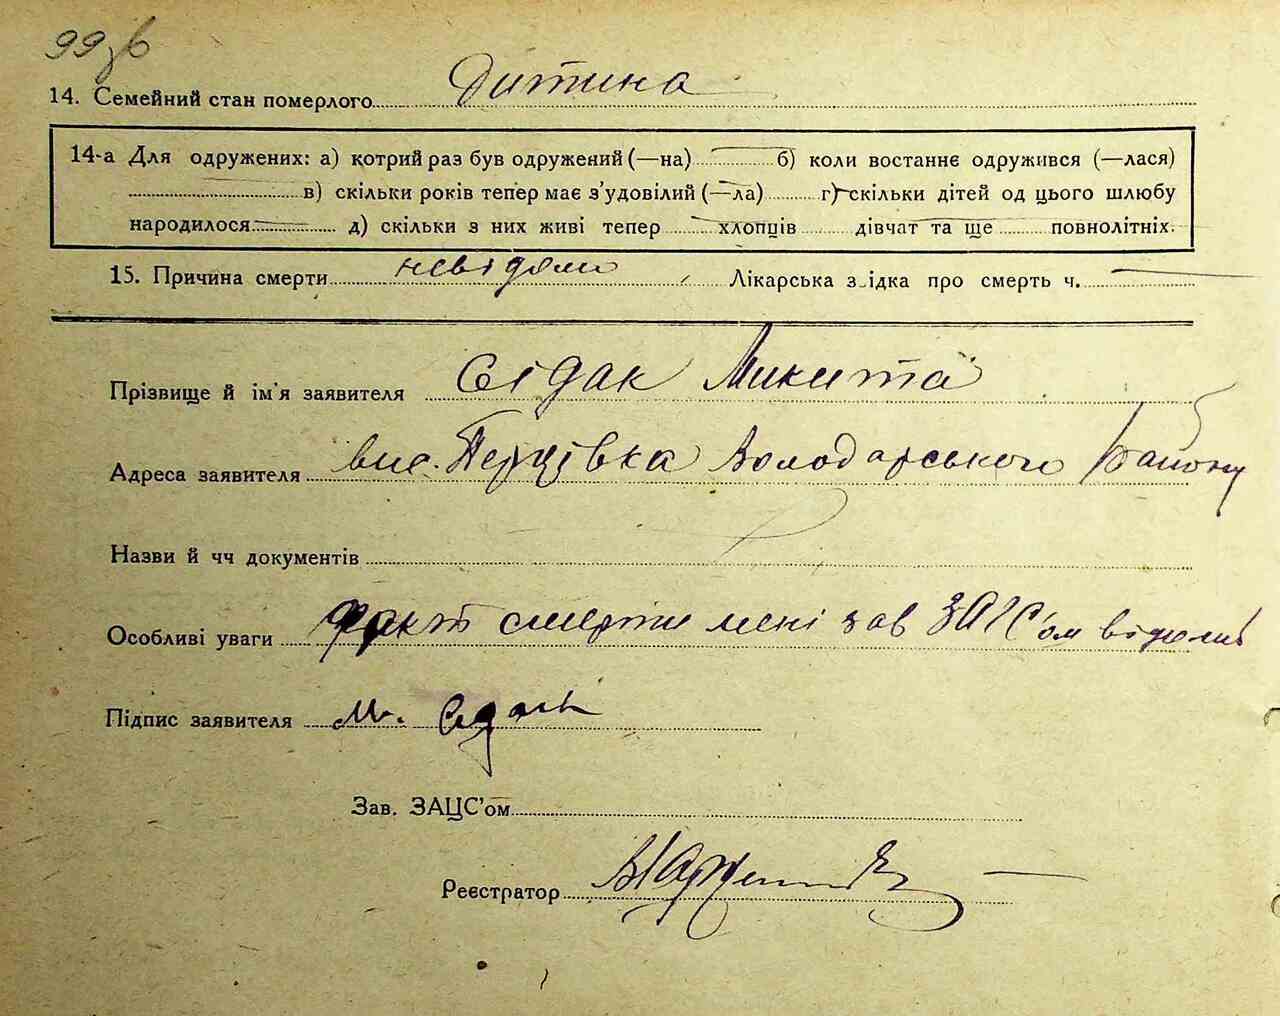 99зв
14. Семейний стан померлого дитина
14-а Для одружених: а) котрий раз був одружений (—на) б) коли востаннє одружився (—лася)
в) скільки років тепер має з'удовілий (—ла) г) скільки дітей од цього шлюбу
народилося д) скільки з них живі тепер хлопців дівчат та ще повнолітніх.
15. Причина смерти невідома Лікарська з ідка про смерть ч.
Прізвище й ім'я заявителя Сідак Микита
Адреса заявителя вис. Перцівка Володарського Району
Назви й чч документів
Особливі уваги факт смерти мені зав ЗАГС'ом відомий
Підпис заявителя М. Седак
Зав. ЗАЦС'ом
Реєстратор